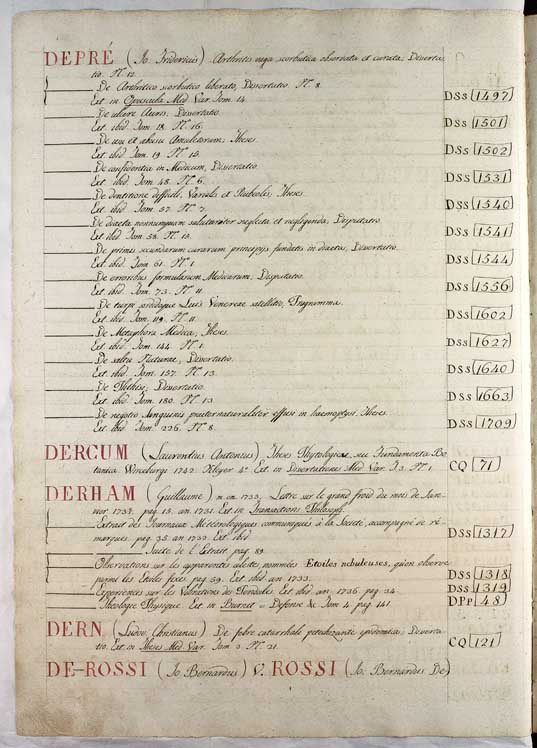 DEPRÉ (Jo. Fridericus) Arthritis vaga scorbutica observata et curata, Disserta-
tio. N. 12.
De Arthritico scorbutico liberato, Dissertatio. N. 8.
Ext. in Opuscula Med. Var. Tom. 14. DSs 1497
De ulcere Auris, Dissertatio.
Ext. ibid. Tom. 18. N. 16. DSs 1501
De usu et abusu Amuletorum, Theses.
Ext. ibid. Tom. 19. N. 15. DSs 1502
De confidentia in Medicum, Dissertatio.
Ext. ibid. Tom. 48. N. 6. DSs 1531
De dentitione difficili, Variolis et Rubeolis, Theses.
Ext. ibid. Tom. 57. N. 7. DSs 1540
De diaeta nonnunquam salutariter neglecta et negligenda, Disputatio.
Ext. ibid. Tom. 58. N. 13. DSs 1541
De primis secundarum curarum principijs fundatis in diaeta, Dissertatio.
Ext. ibid. Tom. 61. N. 1. DSs 1544
De erroribus formularum Medicarum, Disputatio.
Ext. ibid. Tom. 73. N. 11. DSs 1556
De turpi sordidoque Luis Venereae satellitio, Programma.
Ext. ibid. Tom. 119. N. 11. DSs 1602
De Metaphora Medica, Theses.
Ext. ibid. Tom. 144. N. 1. DSs 1627
De saltu Naturae, Dissertatio.
Ext. ibid. Tom. 157. N. 13. DSs 1640
De Phthisi, Dissertatio.
Ext. ibid. Tom. 180. N. 13. DSs 1663
De negotio Sanguinis praeternaturaliter effuso in haemoptysi, Theses.
Ext. ibid. Tom. 226. N. 8. DSs 1709
DERCUM (Laurentius Antonius) Theses Phytologicae, seu Fundamenta Bo-
tanica. Wirceburgi 1742. Kleyer 4° Ext. in Dissertationes Med. Var. T. 3. N. 1. CQ 71
DERHAM (Guillaume) m. en 1733, Lettre sur le grand froid du mois de Jan-
vier 1731. pag. 15. an. 1731. Ext. in Transactions Philosoph.
Extrait des Journaux Météorologiques communiqués à la Societé, acompagné de ré-
marques. pag. 35. an. 1732. Ext. ibid. DSs 1317
Suite de l'Extrait pag. 89.
Observations sur les apparentes celestes nommées Etoiles nebuleuses, qu'on observe
parmi les Etoiles fixes. pag. 59. Ext. ibid. an. 1733. DSs 1318
Experiences sur les Vibrations des Pendules. Ext. ibid. an. 1736. pag. 34. DSs 1319
Theologie Physique. Ext. in Burnet = Defense &c. Tom. 4. pag. 141. DPp 48
DERN (Ludov. Christianus) De febre catarrhali petechizante epidemica, Disserta-
tio. Ext. in Theses Med. Var. Tom. 3. N. 21. CQ 121
DE-ROSSI (Jo. Bernardus) V. ROSSI (Jo. Bernardus De)